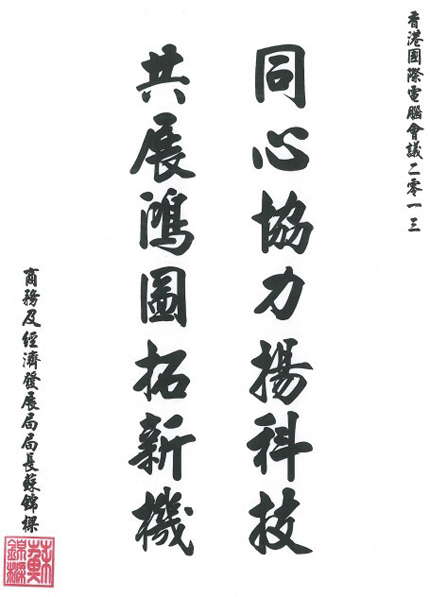 香港國際電腦會議二零一三
同心協力揚科技
共展鴻圖拓新機
商務及經濟發展局局長蘇錦樑
蘇錦樑